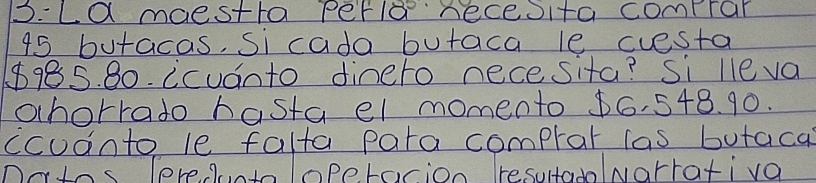 3.- La maestra Perla necesita comprar
45 butacas. Si cada butaca le cuesta
$985.80. ¿cuánto dinero necesita? Si lleva
ahorrado hasta el momento $6.548.90.
¿cuánto le falta para comprar las butacas
Datos Pregunta operacion resultado Narrativa